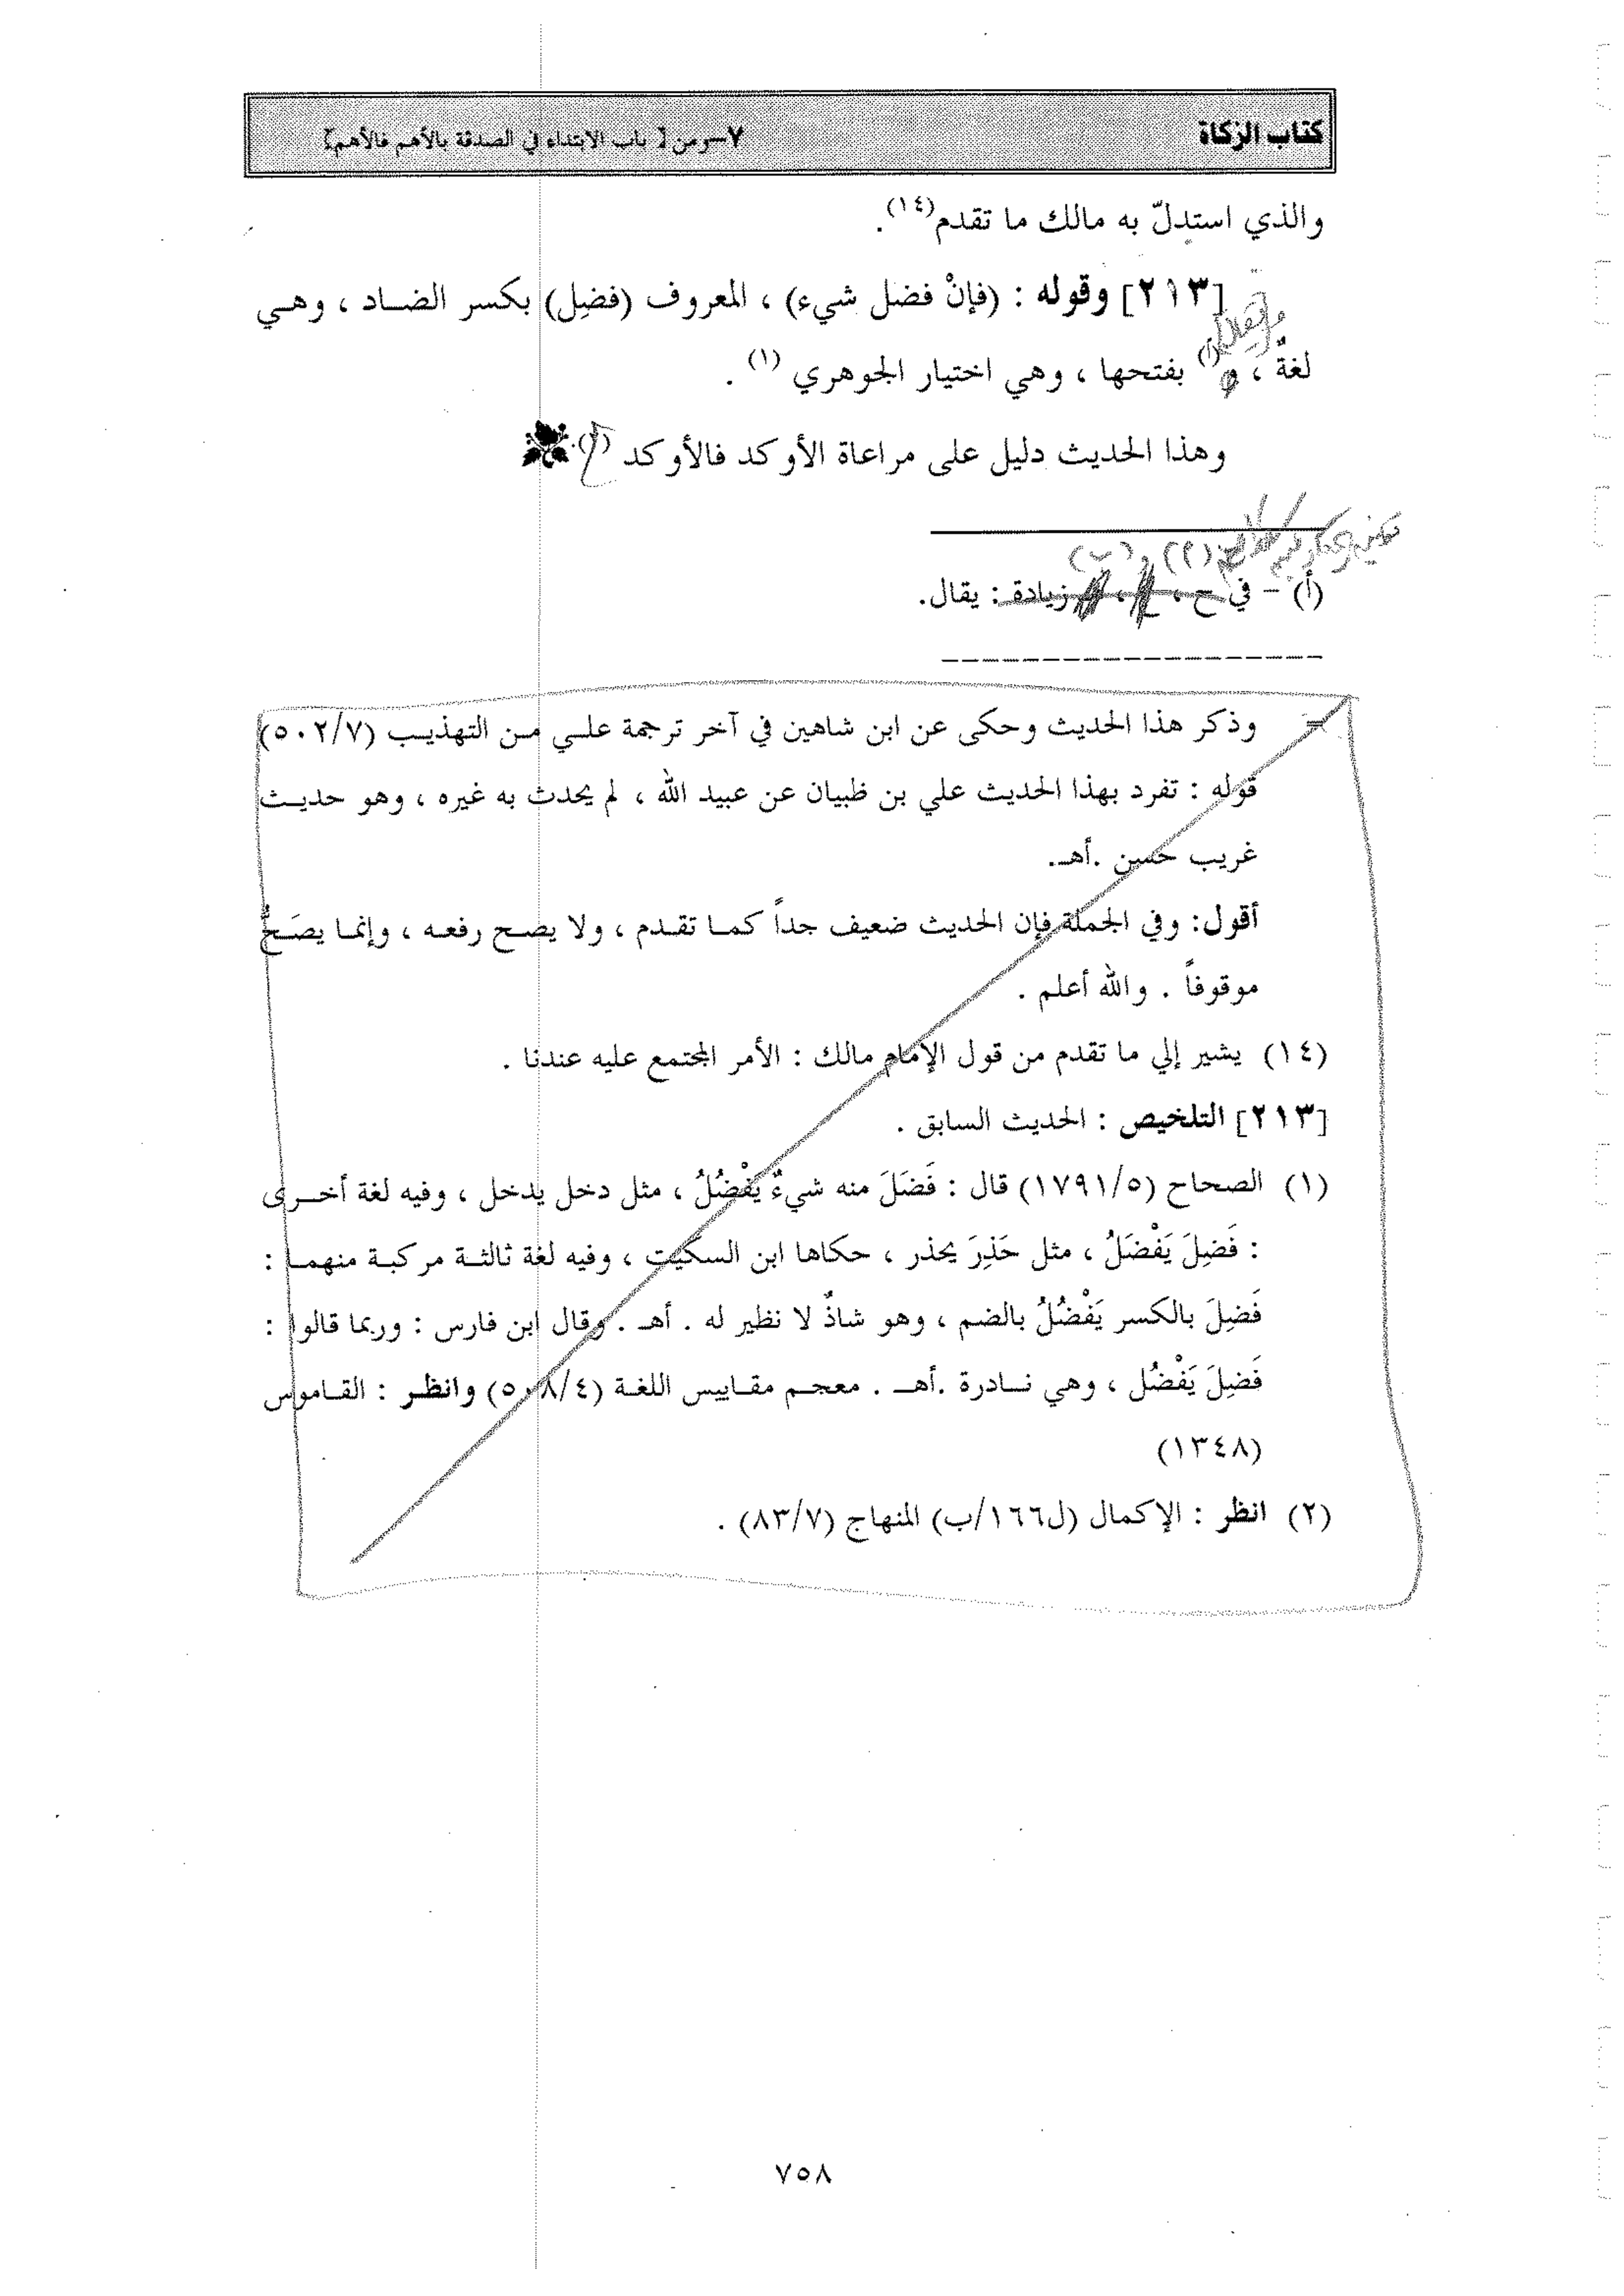 كتاب الزكاة
٧-ومن [ باب الابتداء في الصدقة بالأهم فالأهم]
والذي استدلّ به مالك ما تقدم(١٤).
[٢١٣] وقوله : (فإنْ فضل شيء) ، المعروف (فضِل) بكسر الضاد ، وهي
لغةٌ ، و(أ) بفتحها ، وهي اختيار الجوهري (١) .
وهذا الحديث دليل على مراعاة الأوكد فالأوكد (٢).
(م) و(ب)
(أ) - في ح ، زيادة : يقال.
= وذكر هذا الحديث وحكى عن ابن شاهين في آخر ترجمة علي من التهذيب (٥٠٢/٧)
قوله : تفرد بهذا الحديث علي بن ظبيان عن عبيد الله ، لم يحدث به غيره ، وهو حديث
غريب حسن .أهـ.
أقول: وفي الجملة فإن الحديث ضعيف جداً كما تقدم ، ولا يصح رفعه ، وإنما يصَحُّ
موقوفاً . والله أعلم .
(١٤) يشير إلي ما تقدم من قول الإمام مالك : الأمر المجتمع عليه عندنا .
[٢١٣] التلخيص : الحديث السابق .
(١) الصحاح (١٧٩١/٥) قال : فَضَلَ منه شيءٌ يَفْضُلُ ، مثل دخل يدخل ، وفيه لغة أخرى
: فَضِلَ يَفْضَلُ ، مثل حَذِرَ يحذر ، حكاها ابن السكيت ، وفيه لغة ثالثة مركبة منهما :
فَضِلَ بالكسر يَفْضُلُ بالضم ، وهو شاذٌ لا نظير له . أهـ . وقال ابن فارس : وربما قالوا :
فَضِلَ يَفْضُل ، وهي نادرة .أهـ . معجم مقاييس اللغة (٥٠٨/٤) وانظر : القاموس
(١٣٤٨)
(٢) انظر : الإكمال (ل١٦٦/ب) المنهاج (٨٣/٧) .
٧٥٨